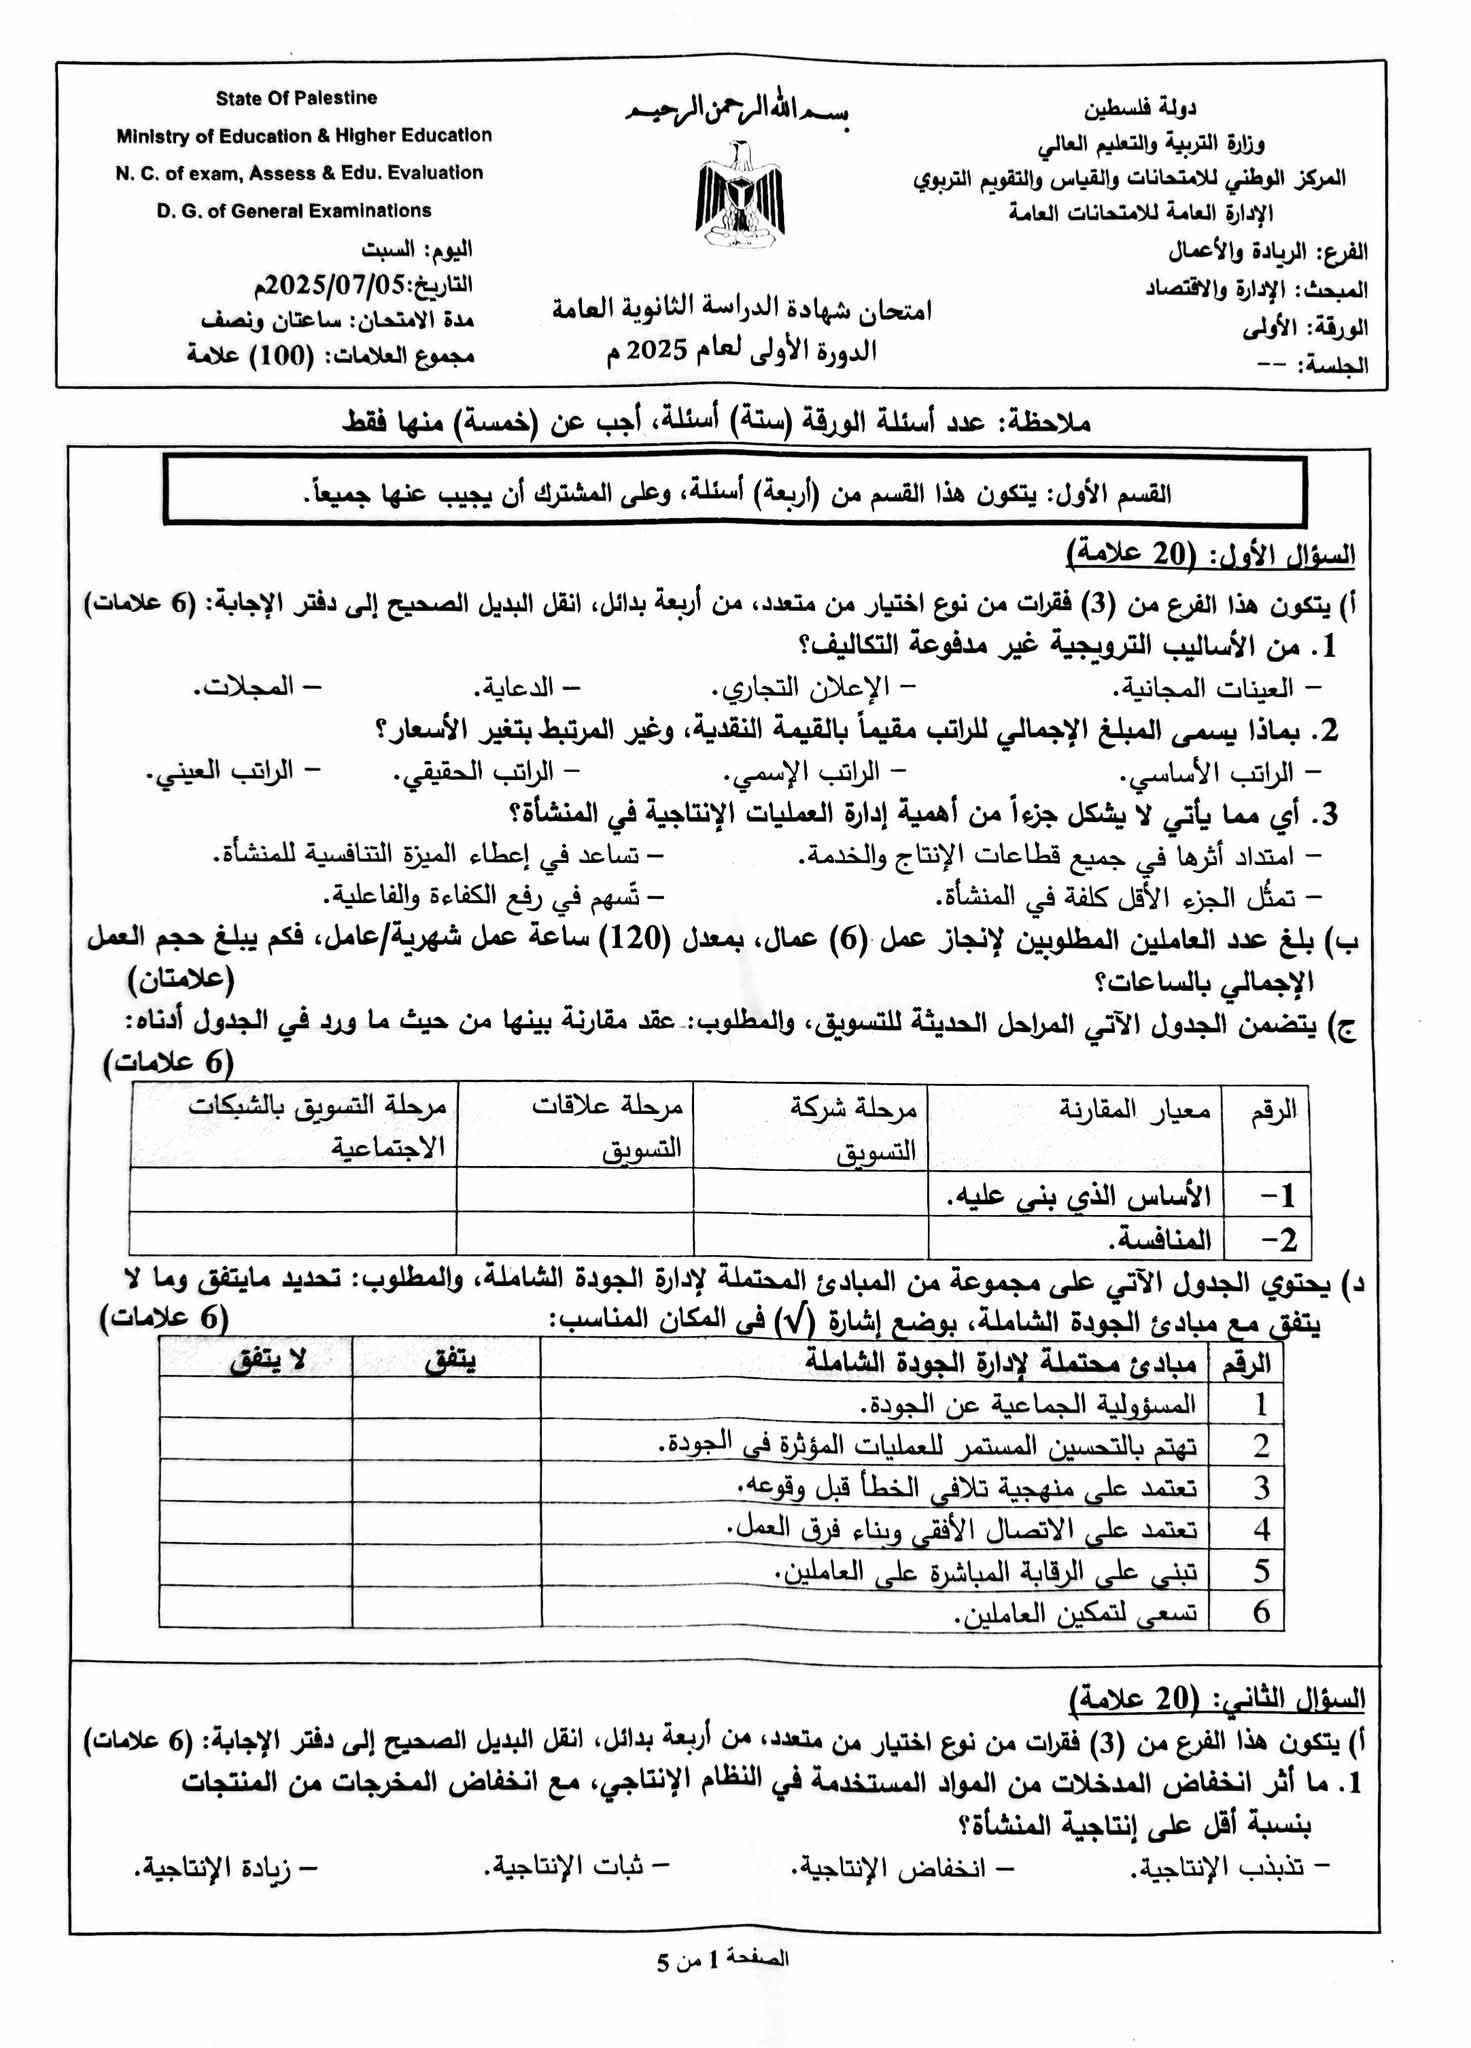 دولة فلسطين
وزارة التربية والتعليم العالي
المركز الوطني للامتحانات والقياس والتقويم التربوي
الإدارة العامة للامتحانات العامة
الفرع: الريادة والأعمال
المبحث: الإدارة والاقتصاد
الورقة: الأولى
الجلسة: --
بسم الله الرحمن الرحيم
امتحان شهادة الدراسة الثانوية العامة
الدورة الأولى لعام 2025 م
State Of Palestine
Ministry of Education & Higher Education
N. C. of exam, Assess & Edu. Evaluation
D. G. of General Examinations
اليوم: السبت
التاريخ:2025/07/05م
مدة الامتحان: ساعتان ونصف
مجموع العلامات: (100) علامة
ملاحظة: عدد أسئلة الورقة (ستة) أسئلة، أجب عن (خمسة) منها فقط
القسم الأول: يتكون هذا القسم من (أربعة) أسئلة، وعلى المشترك أن يجيب عنها جميعاً.
السؤال الأول: (20 علامة)
أ) يتكون هذا الفرع من (3) فقرات من نوع اختيار من متعدد، من أربعة بدائل، انقل البديل الصحيح إلى دفتر الإجابة: (6 علامات)
1. من الأساليب الترويجية غير مدفوعة التكاليف؟
– العينات المجانية. – الإعلان التجاري. – الدعاية. – المجلات.
2. بماذا يسمى المبلغ الإجمالي للراتب مقيماً بالقيمة النقدية، وغير المرتبط بتغير الأسعار؟
– الراتب الأساسي. – الراتب الإسمي. – الراتب الحقيقي. – الراتب العيني.
3. أي مما يأتي لا يشكل جزءاً من أهمية إدارة العمليات الإنتاجية في المنشأة؟
– امتداد أثرها في جميع قطاعات الإنتاج والخدمة. – تساعد في إعطاء الميزة التنافسية للمنشأة.
– تمثُّل الجزء الأقل كلفة في المنشأة. – تُسهم في رفع الكفاءة والفاعلية.
ب) بلغ عدد العاملين المطلوبين لإنجاز عمل (6) عمال، بمعدل (120) ساعة عمل شهرية/عامل، فكم يبلغ حجم العمل
الإجمالي بالساعات؟ (علامتان)
ج) يتضمن الجدول الآتي المراحل الحديثة للتسويق، والمطلوب: عقد مقارنة بينها من حيث ما ورد في الجدول أدناه:
(6 علامات)
الرقم معيار المقارنة مرحلة شركة التسويق مرحلة علاقات التسويق مرحلة التسويق بالشبكات الاجتماعية
1- الأساس الذي بني عليه.
2- المنافسة.
د) يحتوي الجدول الآتي على مجموعة من المبادئ المحتملة لإدارة الجودة الشاملة، والمطلوب: تحديد مايتفق وما لا
يتفق مع مبادئ الجودة الشاملة، بوضع إشارة (√) في المكان المناسب: (6 علامات)
الرقم مبادئ محتملة لإدارة الجودة الشاملة يتفق لا يتفق
1 المسؤولية الجماعية عن الجودة.
2 تهتم بالتحسين المستمر للعمليات المؤثرة في الجودة.
3 تعتمد على منهجية تلافي الخطأ قبل وقوعه.
4 تعتمد على الاتصال الأفقي وبناء فرق العمل.
5 تبنى على الرقابة المباشرة على العاملين.
6 تسعى لتمكين العاملين.
السؤال الثاني: (20 علامة)
أ) يتكون هذا الفرع من (3) فقرات من نوع اختيار من متعدد، من أربعة بدائل، انقل البديل الصحيح إلى دفتر الإجابة: (6 علامات)
1. ما أثر انخفاض المدخلات من المواد المستخدمة في النظام الإنتاجي، مع انخفاض المخرجات من المنتجات
بنسبة أقل على إنتاجية المنشأة؟
– تذبذب الإنتاجية. – انخفاض الإنتاجية. – ثبات الإنتاجية. – زيادة الإنتاجية.
الصفحة 1 من 5